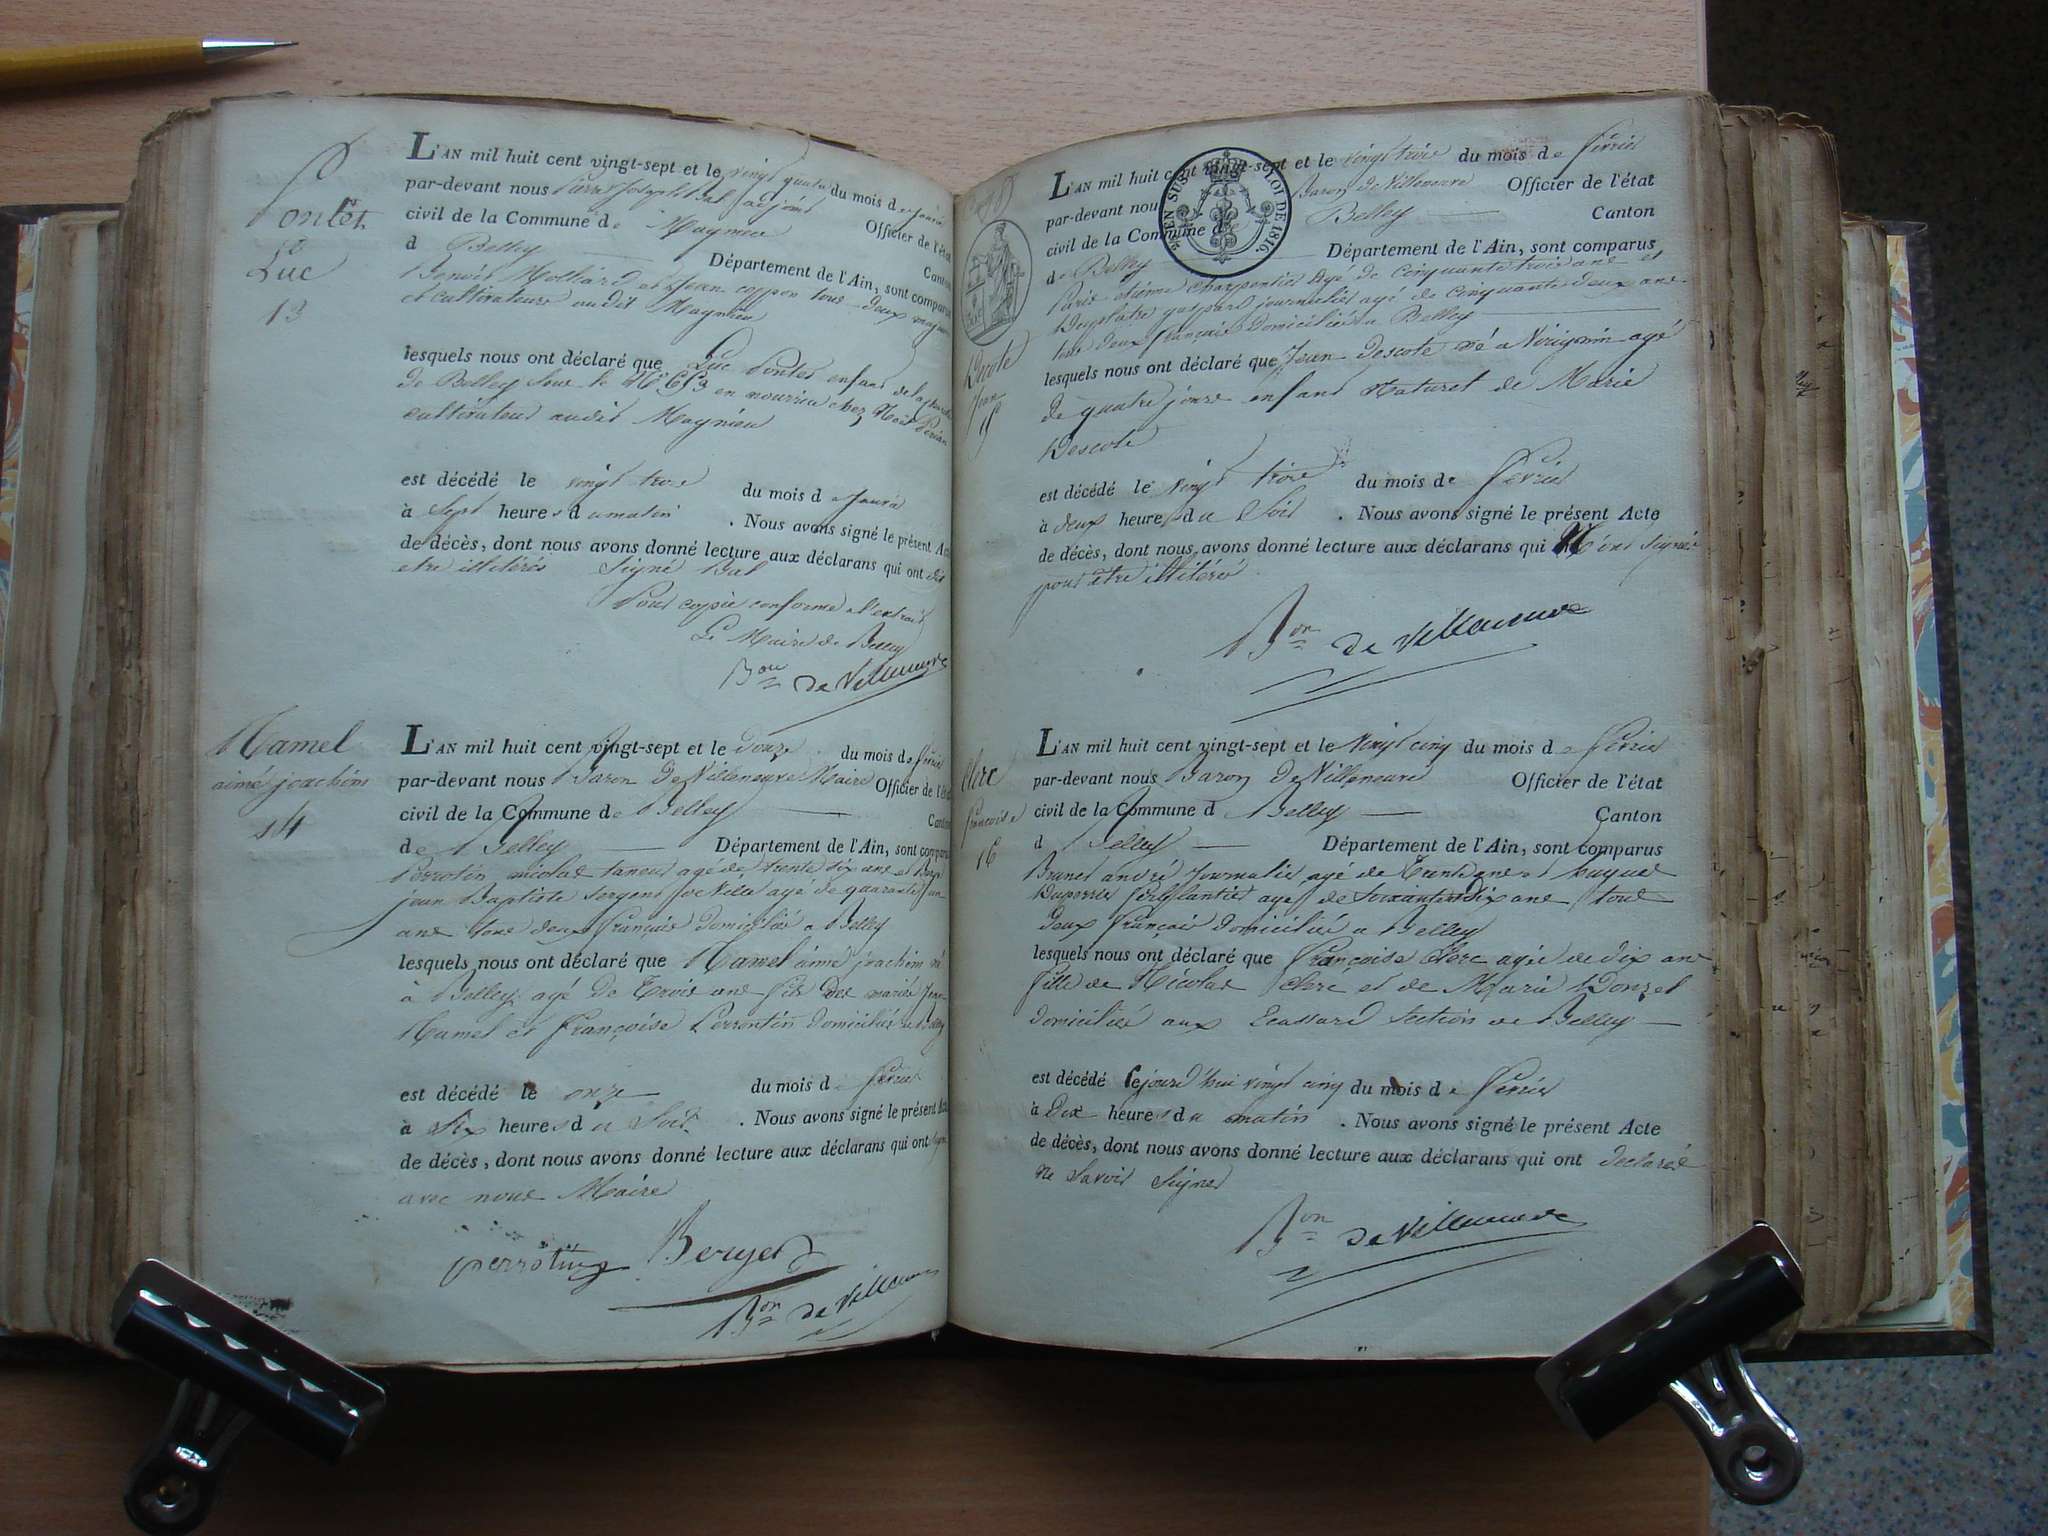 Pontet
Luc
13
L'AN mil huit cent vingt-sept et le vingt quatre du mois de Janvr
par-devant nous Pierre Joseph Bal adjoint Officier de l'état
civil de la Commune de Magnieu Canton
d Belley Département de l'Ain, sont comparus
Benoit Molliard et Jean coppon tous deux
et cultivateurs au dit Magnieu
lesquels nous ont déclaré que Luc Pontet enfant de
de Belley sous le N° 613 en nourrice chez Noël
cultivateur audit Magnieu
est décédé le vingt trois du mois de Janvr
à Sept heures du matin . Nous avons signé le présent Acte
de décès, dont nous avons donné lecture aux déclarans qui ont dit
etre illitérés Signé Bal
Pour copie conforme a l'extrait
Le Maire de Belley
Bon de Villeneuve
Hamel
aimé joachim
14
L'AN mil huit cent vingt-sept et le Douze du mois de févrie
par-devant nous Baron De Villeneuve Maire Officier de l'état
civil de la Commune de Belley Canton
de Belley Département de l'Ain, sont comparus
Perrotin nicolas taneur agé de trente six ans et
jean Baptiste Sergent de Ville agé de quarante un
ans tous deux français domicilié a Belley
lesquels nous ont déclaré que Hamel aimé joachim né
à Belley agé De Trois ans fils des mariés
Hamel et françoise Perrontin domiciliés a Belley
est décédé le onze du mois de févrie
à Six heures du Soir . Nous avons signé le présent Acte
de décès, dont nous avons donné lecture aux déclarans qui ont signé
avec nous Maire
perrotin Berger
Bon de Villeneuve
EN SUS. LOI DE 1816.
Decote
Jean
L'AN mil huit cent vingt-sept et le vingt trois du mois de févrie
par-devant nous Baron de Villeneuve Officier de l'état
civil de la Commune de Belley Canton
de Belley Département de l'Ain, sont comparus
Paris etienne charpentier agé de cinquante trois ans et
gaspard journalier agé de cinquante deux ans
tous deux français domiciliés a Belley
lesquels nous ont déclaré que Jean Descote né a Virignin agé
de quatre jours enfant Naturel de Marie
Descote
est décédé le vingt trois du mois de févrie
à deux heures du Soir . Nous avons signé le présent Acte
de décès, dont nous avons donné lecture aux déclarans qui N'ont signés
pour être illitéré
Bon de Villeneuve
Clerc
françoise
16
L'AN mil huit cent vingt-sept et le Vingt cinq du mois de févrie
par-devant nous Baron De Villeneuve Officier de l'état
civil de la Commune d Belley Canton
d Belley Département de l'Ain, sont comparus
Brunet andré Journalier agé de
agé de Soixante et Dix ans tous
deux français domicilié a Belley
lesquels nous ont déclaré que Françoise Clerc agée de dix ans
fille de Nicolas Clerc et de Marie Donzel
domiciliés aux Ecassard Section de Belley
est décédé cejourd'hui vingt cinq du mois de févrie
à Dix heures du matin . Nous avons signé le présent Acte
de décès, dont nous avons donné lecture aux déclarans qui ont déclarés
ne Savoir Signer
Bon de Villeneuve